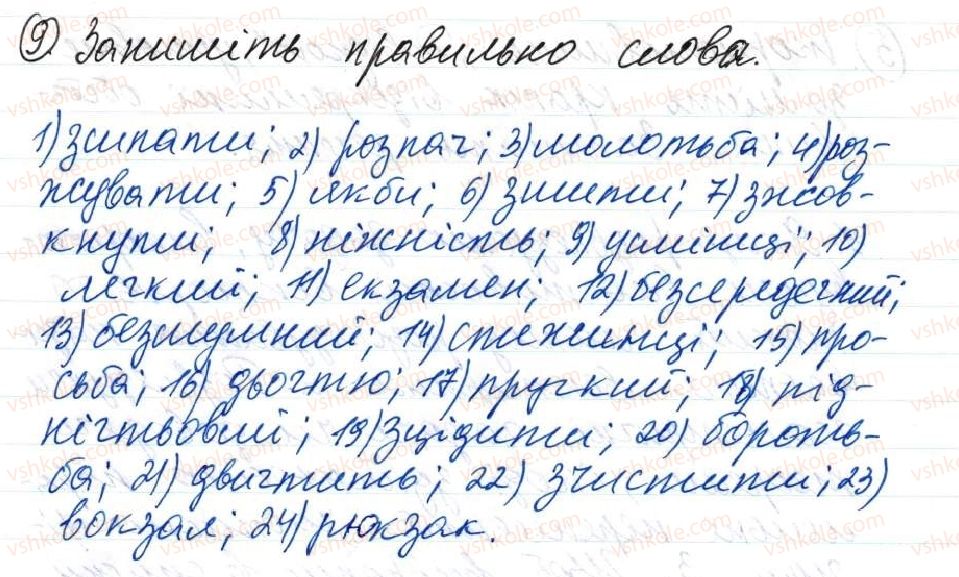 9) Запишіть правильно слова.
1) зсипати; 2) розпач; 3) молотьба; 4) роз-
жувати; 5) якби; 6) зшити; 7) зжов-
кнути; 8) ніжність; 9) усмішці; 10)
легкий; 11) екзамен; 12) безсердечний;
13) безшумний; 14) стежинці; 15) про-
сьба; 16) дьогтю; 17) пругкий; 18) під-
нігтьовий; 19) зцідити; 20) бороть-
ба; 21) двигтить; 22) зчистити; 23)
вокзал; 24) рюкзак.